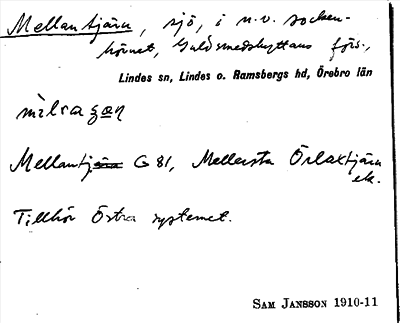 Mellantjärn, sjö, i n.v. socken-
hörnet, Guldsmedshyttans förs.,
Lindes sn, Lindes o. Ramsbergs hd, Örebro län
Mellantjärn G 81, Mellersta Örlaxtjärn
ek.
Tillhör Östra systemet.
SAM JANSSON 1910-11